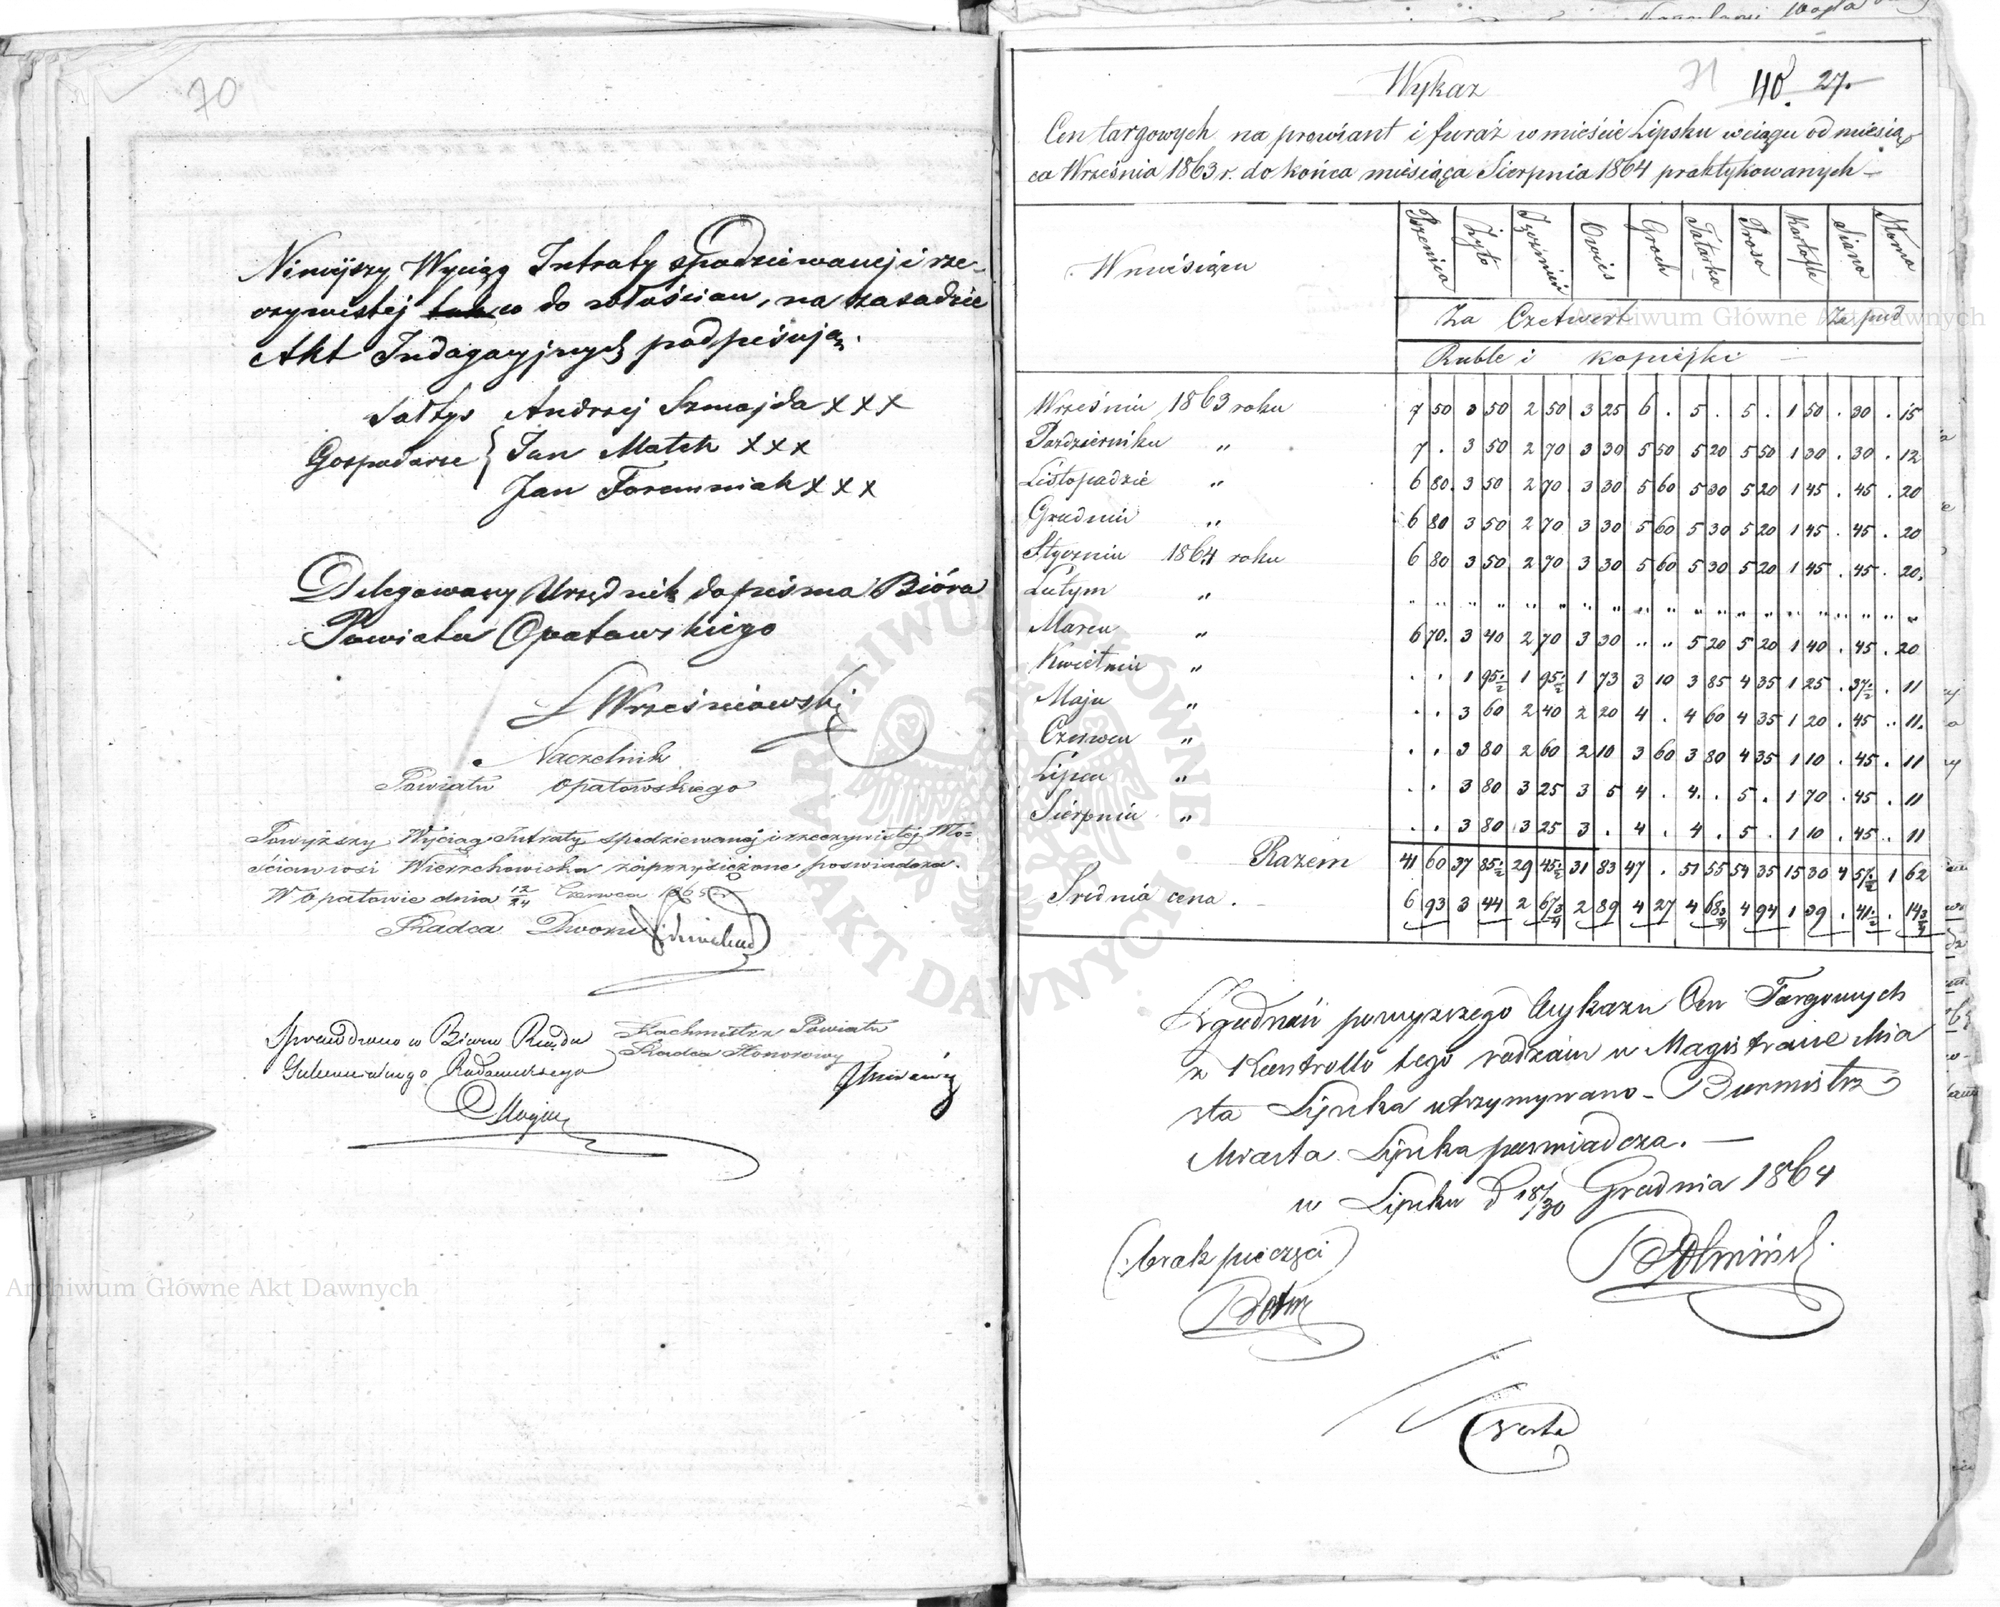 70
Niniejszy Wyciąg Intraty spodziewanej i rze-
czywistej co do włościan, na zasadzie
Akt Indagacyjnych podpisują.
Sołtys Andrzej Szmajda xxx
Gospodarze { Jan Matek xxx
Jan Foremniak xxx
Delegowany Urzędnik do pisma Bióra
Powiatu Opatowskiego
Wrześniowski
Naczelnik
Powiatu Opatowskiego
Powyższy Wyciąg Intraty spodziewanej i rzeczywistej Wło=
ścianwsi Wierzchowiska zaprzysiężone, poświadcza.
W Opatowie dnia 12/24 Czerwca 1865 r.
Radca Dworu
Sprawdzono w Biurze Rządu
Gubernialnego Radomskiego
Rachmistrz Powiatu
Radca Honorowy
71 40. 27.
Wykaz
Cen targowych na prowiant i furaż w mieście Lipsku w ciągu od miesią
ca Września 1863 r. do końca miesiąca Sierpnia 1864 praktykowanych –
W miesiącu Pszenica Żyto Jęczmień Owies Groch Tatarka Prosa Kartofle Siano Słoma
Za Czetwert Za pud
Ruble i kopiejki
Wrześniu 1863 roku 7 50 3 50 2 50 3 25 6 . 5 . 5 . 1 50 . 30 . 15
Październiku „ 7 . 3 50 2 70 3 30 5 50 5 20 5 50 1 30 . 30 . 12
Listopadzie „ 6 80 3 50 2 70 3 30 5 60 5 30 5 20 1 45 . 45 . 20
Grudniu „ 6 80 3 50 2 70 3 30 5 60 5 30 5 20 1 45 . 45 . 20
Styczniu 1864 roku 6 80 3 50 2 70 3 30 5 60 5 30 5 20 1 45 . 45 . 20
Lutym „ „ „ „ „ „ „ „ „ „ „ „ „ „ „ „ „ „ „ „ „
Marcu „ 6 70 3 40 2 70 3 30 „ „ 5 20 5 20 1 40 . 45 . 20
Kwietniu „ . . 1 95½ 1 95½ 1 73 3 10 3 85 4 35 1 25 . 37½ . 11
Maju „ . . 3 60 2 40 2 20 4 . 4 60 4 35 1 20 . 45 . 11
Czerwcu „ . . 3 80 2 60 2 10 3 60 3 80 4 35 1 10 . 45 . 11
Lipcu „ . . 3 80 3 25 3 5 4 . 4 . 5 . 1 70 . 45 . 11
Sierpniu „ . . 3 80 3 25 3 . 4 . 4 . 5 . 1 10 . 45 . 11
Razem 41 60 37 85½ 29 45½ 31 83 47 . 51 55 54 35 15 30 4 57½ 1 62
Srednia cena . 6 93 3 44 2 67¾ 2 89 4 27 4 68¾ 4 94 1 39 . 41½ . 14¾
Zgodność powyższego Wykazu Cen Targowych
z Kontrollo tego rodzaiu w Magistracie Mia
sta Lipska utrzymywano – Burmistrz
Miasta Lipska poświadcza. –
w Lipsku d 18/30 Grudnia 1864
(:brak pieczęci)
Archiwum Główne Akt Dawnych
Archiwum Główne Akt Dawnych
ARCHIWUM GŁÓWNE · AKT DAWNYCH ·